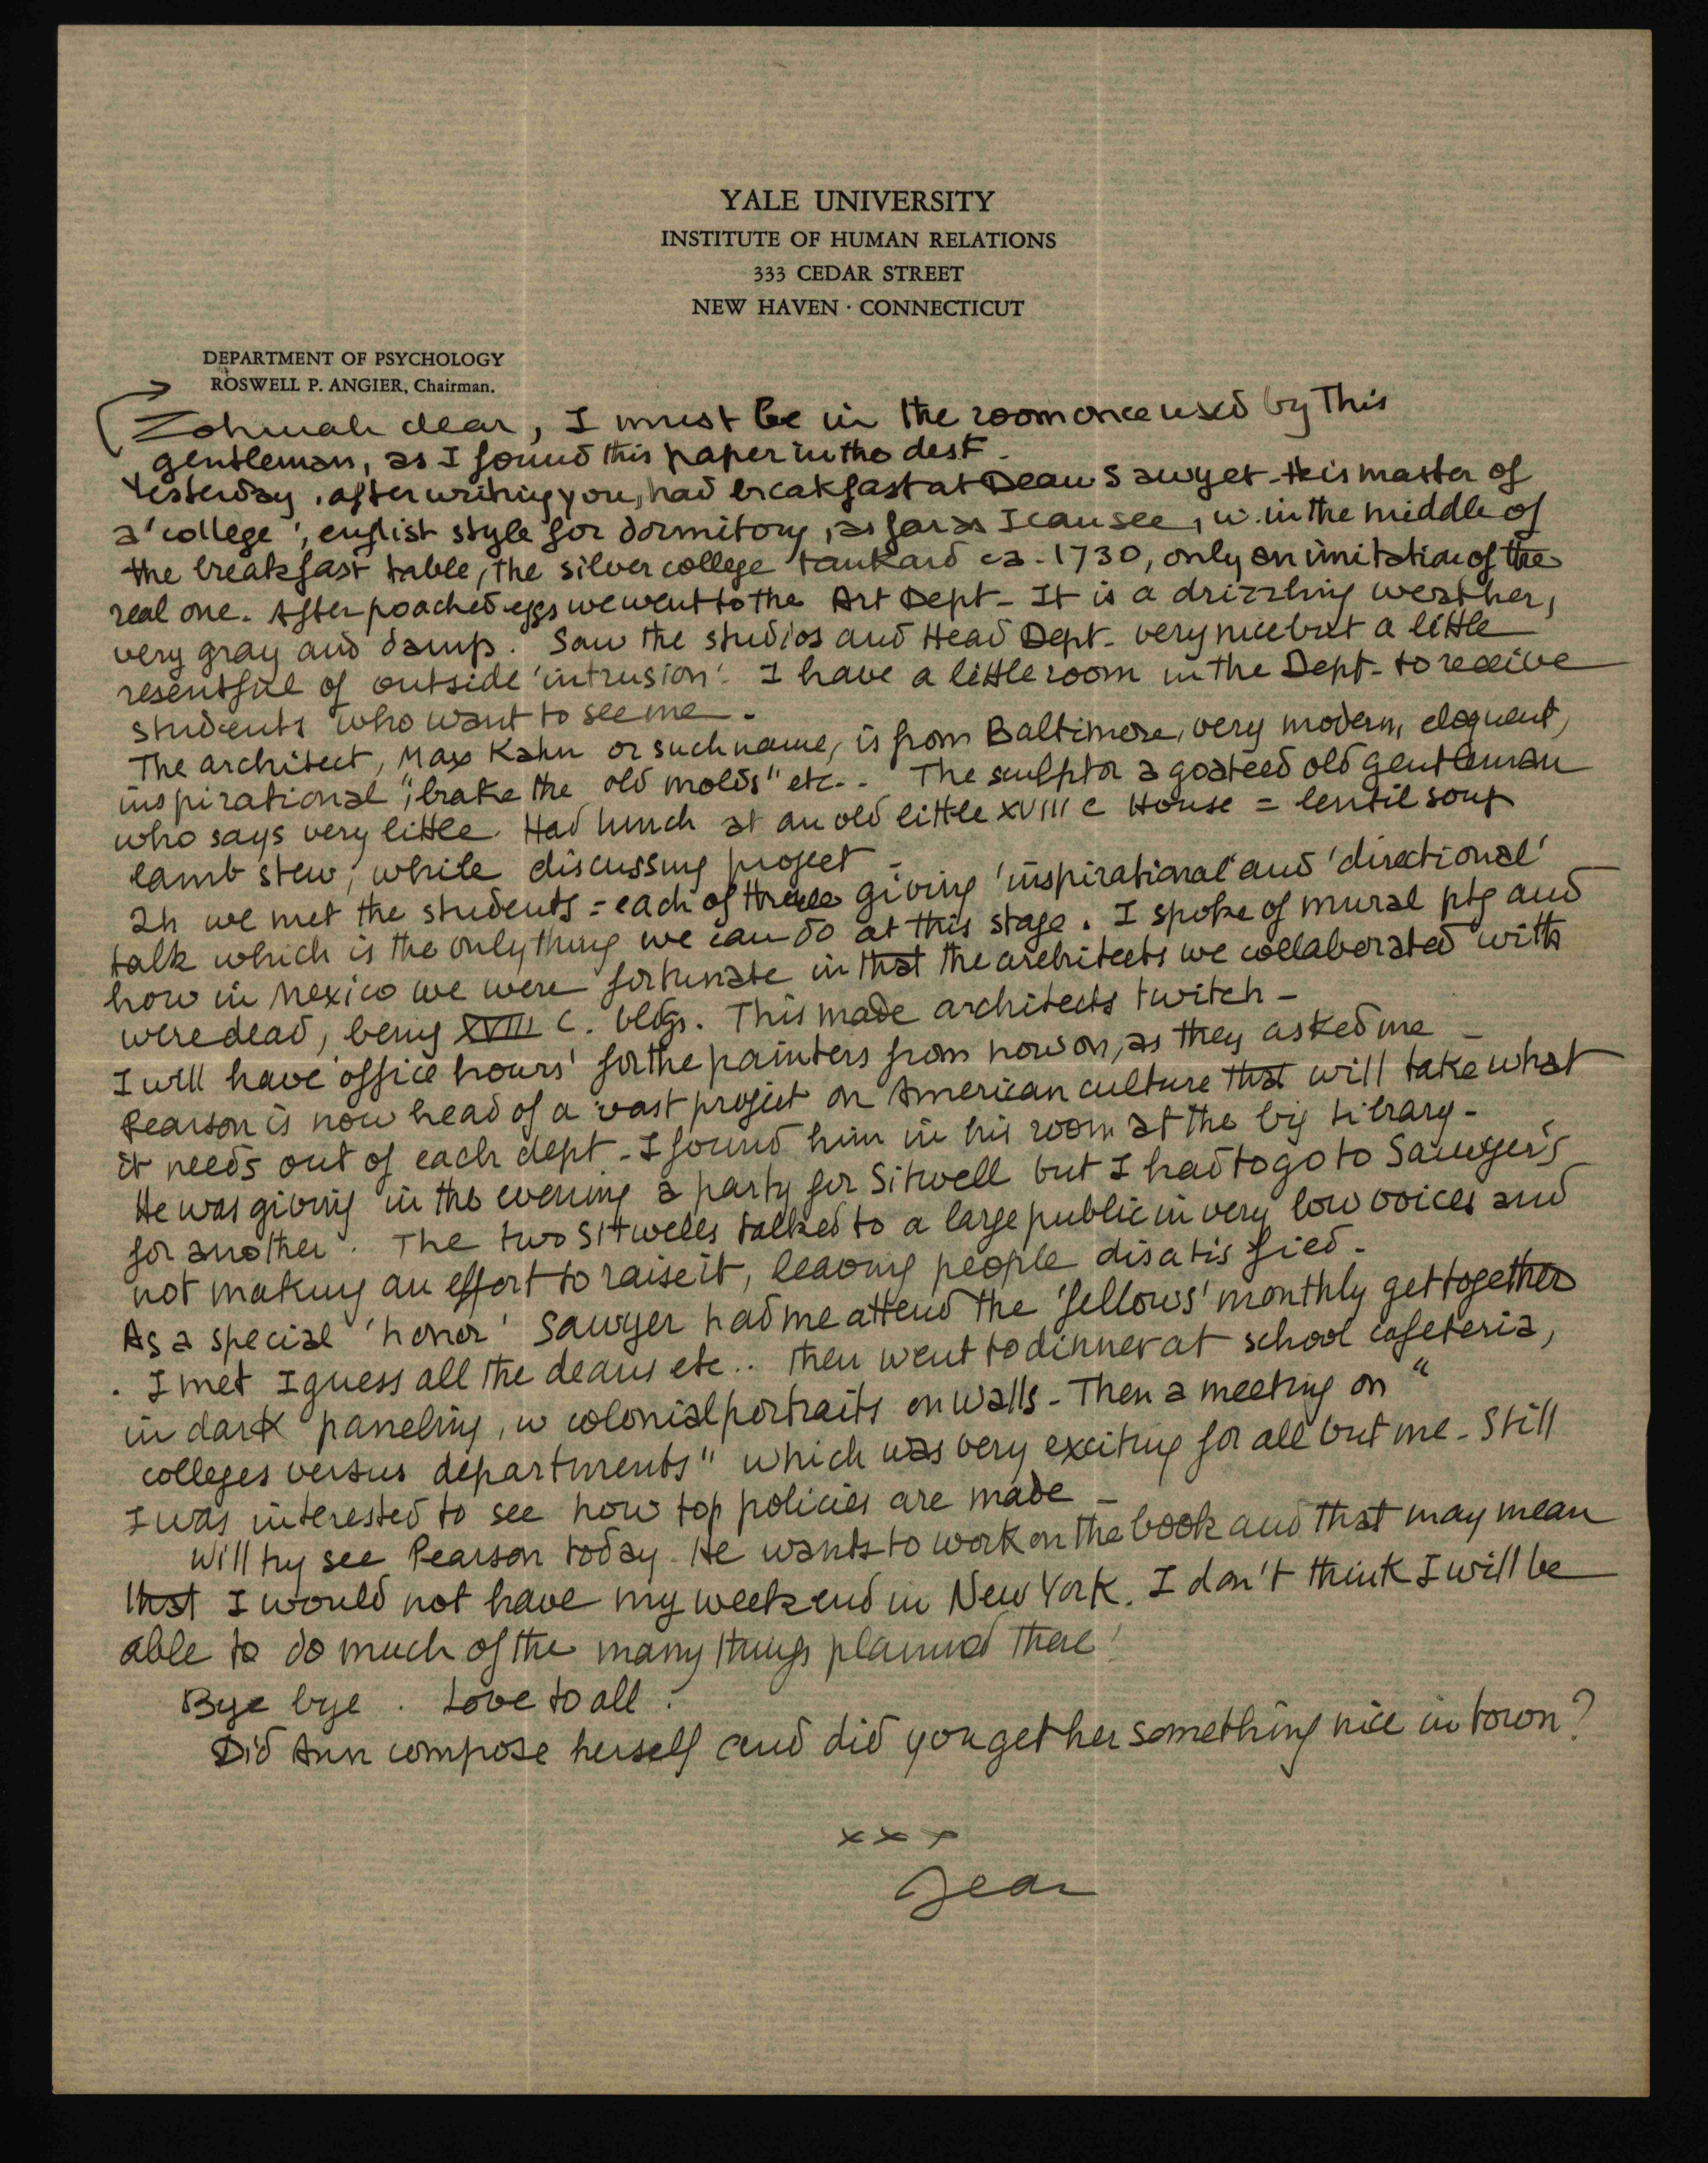 YALE UNIVERSITY
INSTITUTE OF HUMAN RELATIONS
333 CEDAR STREET
NEW HAVEN · CONNECTICUT
DEPARTMENT OF PSYCHOLOGY
ROSWELL P. ANGIER, Chairman.
Zohmah dear, I must be in the room once used by this
gentleman, as I found this paper in the desk.
Yesterday, after writing you, had breakfast at Dean Sawyer - He is master of
a 'college', english style for dormitory, as far as I can see, w. in the middle of
the breakfast table, the silver college tankard ca. 1730, only an imitation of the
real one. After poached eggs we went to the Art Dept - It is a drizzling weather,
very gray and damp. Saw the studios and Head Dept - very nice but a little
resentful of outside 'intrusion'. I have a little room in the Dept - to receive
students who want to see me.
The architect, Max Kahn or such name, is from Baltimore, very modern, eloquent,
inspirational, "brake the old molds" etc.. The sculptor a goateed old gentleman
who says very little. Had lunch at an old little XVIII c House = lentil soup
lamb stew; while discussing project -
2h we met the students = each of three giving 'inspirational' and 'directional'
talk which is the only thing we can do at this stage. I spoke of mural ptg and
how in Mexico we were fortunate in that the architects we collaborated with
were dead, being XVIII C. bldgs. This made architects twitch -
I will have 'office hours' for the painters from now on, as they asked me -
Pearson is now head of a vast project on American culture that will take what
it needs out of each dept - I found him in his room at the big Library -
He was giving in the evening a party for Sitwell but I had to go to Sawyer's
for another. The two Sitwells talked to a large public in very low voices and
not making an effort to raise it, leaving people disatisfied.
As a special 'honor' Sawyer had me attend the 'fellows' monthly get together
. I met I guess all the deans etc.. Then went to dinner at school cafeteria,
in dark paneling, w colonial portraits on walls - Then a meeting on "
colleges versus departments" which was very exciting for all but me - Still
I was interested to see how top policies are made -
Will try see Pearson today - He wants to work on the book and that may mean
that I would not have my weekend in New York. I don't think I will be
able to do much of the many things planned there!
Bye bye. Love to all.
Did Ann compose herself and did you get her something nice in town?
x x x
Jean